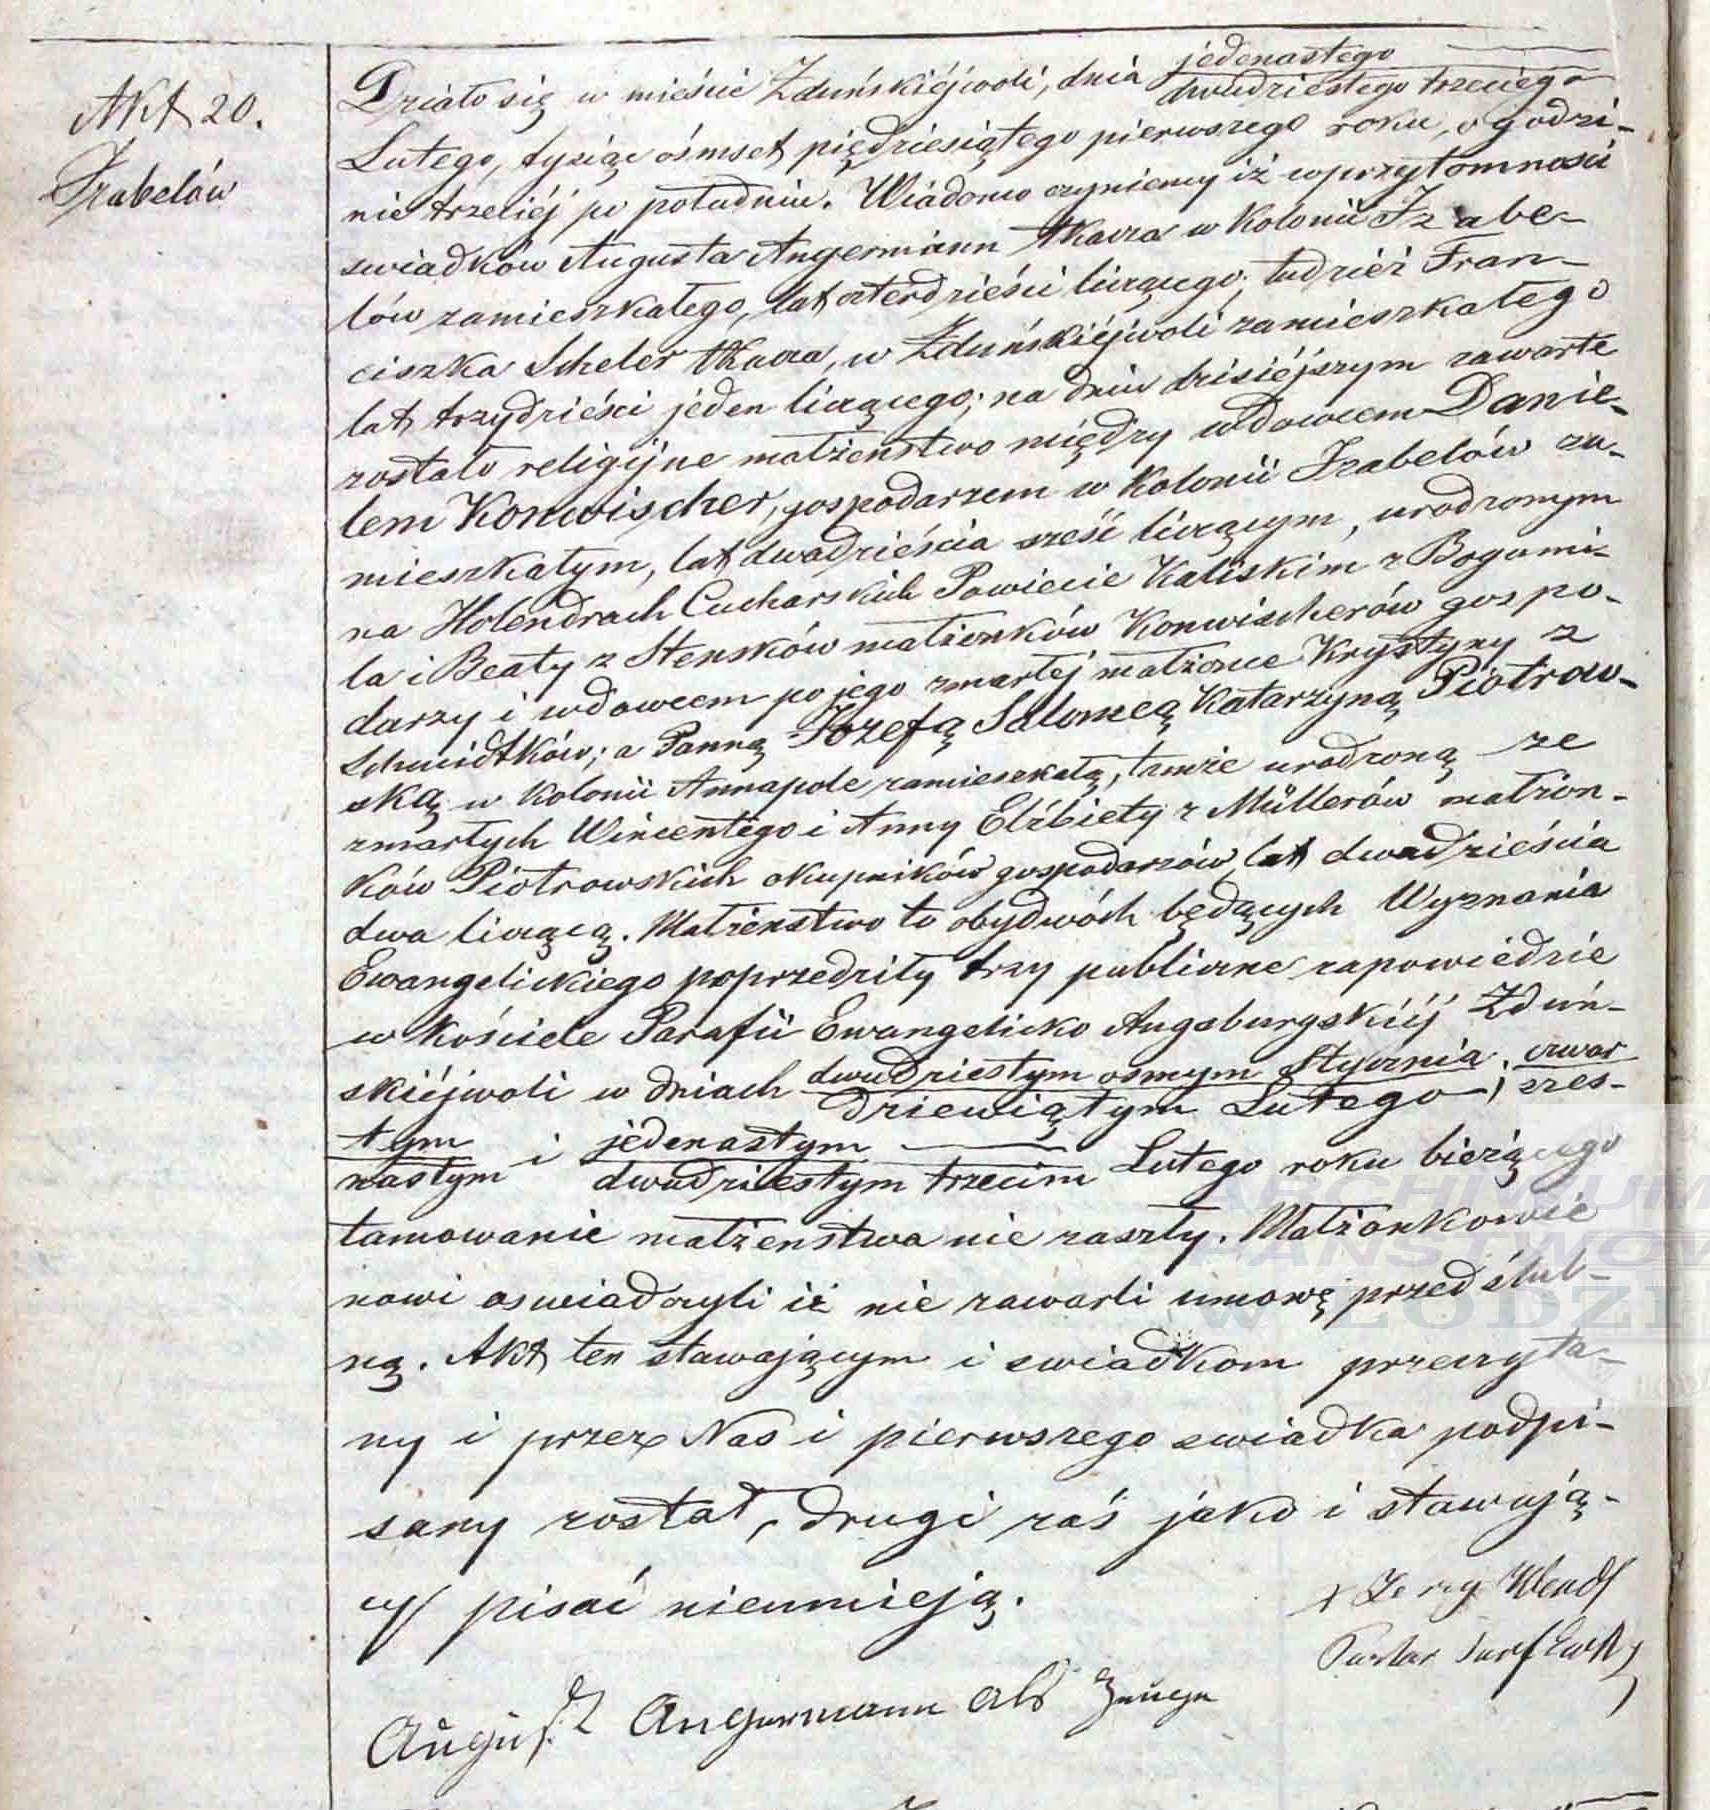 Akt 20.
Izabelów
Działo się w mieście Zduńskiéjwoli, dnia jedenastego
dwudziestego trzeciego
Lutego, tysiąc óśmset piędziesiątego pierwszego roku, o godzi-
nie trzeciéj po południu. Wiadomo czyniemy iż w przytomności
swiadków Augusta Angermann tkacza w Kolonii Izabe-
lów zamieszkałego, lat czterdzieści liczącego, tudzież Fran-
ciszka Scheler tkacza, w Zduńskiéjwoli zamieszkałego
lat trzydzieści jeden liczącego; na dniu dzisiéjszym zawarte
zostało religijne małżenstwo między wdowcem Danie-
lem Konwischer, gospodarzem w Kolonii Izabelów za-
mieszkałym, lat dwadzieścia sześć liczącym, urodzonym
na Holendrach Cucharskich Powiecie Kaliskim z Bogumi-
ła i Beaty z Stensków małżonków Konwischerów gospo-
darzy i wdowcem po jego zmarłej małżonce Krystyny z
Schmidtków; a Panną Józefą Salomeą Katarzyną Piotrow-
ską w Kolonii Annapole zamieszkałą, tamże urodzoną ze
zmarłych Wincentego i Anny Elżbiety z Müllerów małżon-
ków Piotrowskich okupników gospodarzów, lat dwadzieścia
dwa liczącą. Małżenstwo to obydwóch będących Wyznania
Ewangelickiego poprzedziły trzy publiczne zapowiedzie
w kościele Parafii Ewangelicko Augsburgskiéj Zduń-
skiéjwoli w dniach dwudziestym osmym Stycznia, czwar
dziewiątym Lutego, szes-
tym i jedenastym
nastym dwudziestym trzecim Lutego roku bieżącego
tamowanie małżenstwa nie zaszły. Małżonkowie
nowi oswiadczyli iż nie zawarli umowę przedślub-
ną. Akt ten stawającym i swiadkom przeczyta-
ny i przez Nas i pierwszego swiadka podpi-
sany został, drugi zaś jako i stawają-
cy pisać nieumieją.
Jerzy Wendt
Pastor
August Angermann als Zeuge
ARCHIWUM
PAŃSTWOW
W ŁODZI